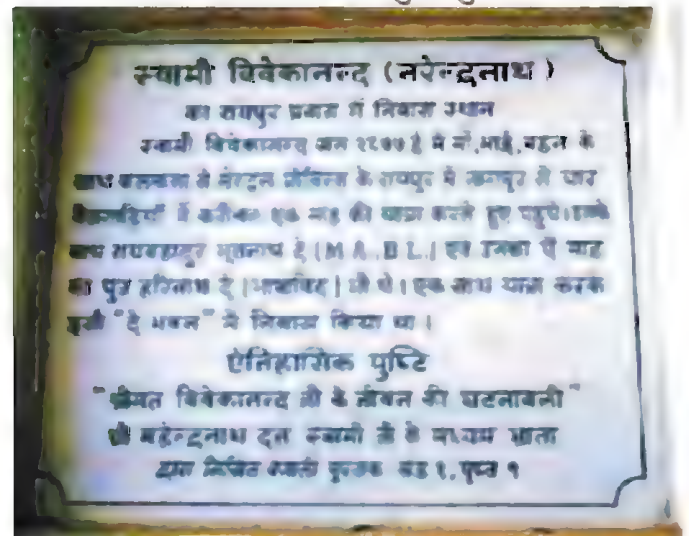 स्वामी विवेकानन्द (नरेन्द्रनाथ)
का रायपुर प्रवास में निवास स्थान
स्वामी विवेकानन्द सन १८७७ ई में माँ, भाई, बहन के
साथ कलकत्ता से सेन्ट्रल प्रोविन्स के रायपुर में नागपुर से चार
बैलगाड़ियों में करीबन एक माह की यात्रा करते हुए पहुचे। उनके
साथ रायबहादुर भूतनाथ दे (M.A.,B.L.) एवं उनका माह
का पुत्र हरिनाथ दे (भाषाविद) भी थे। एक साथ यात्रा करके
इसी "दे भवन" में निवास किया था।
ऐतिहासिक पुष्टि
"श्रीमत विवेकानन्द जी के जीवन की घटनावली"
श्री महेन्द्रनाथ दत्त स्वामी जी के मध्यम भ्राता
द्वारा लिखित बंगाली पुस्तक खंड १, पृष्ठ १